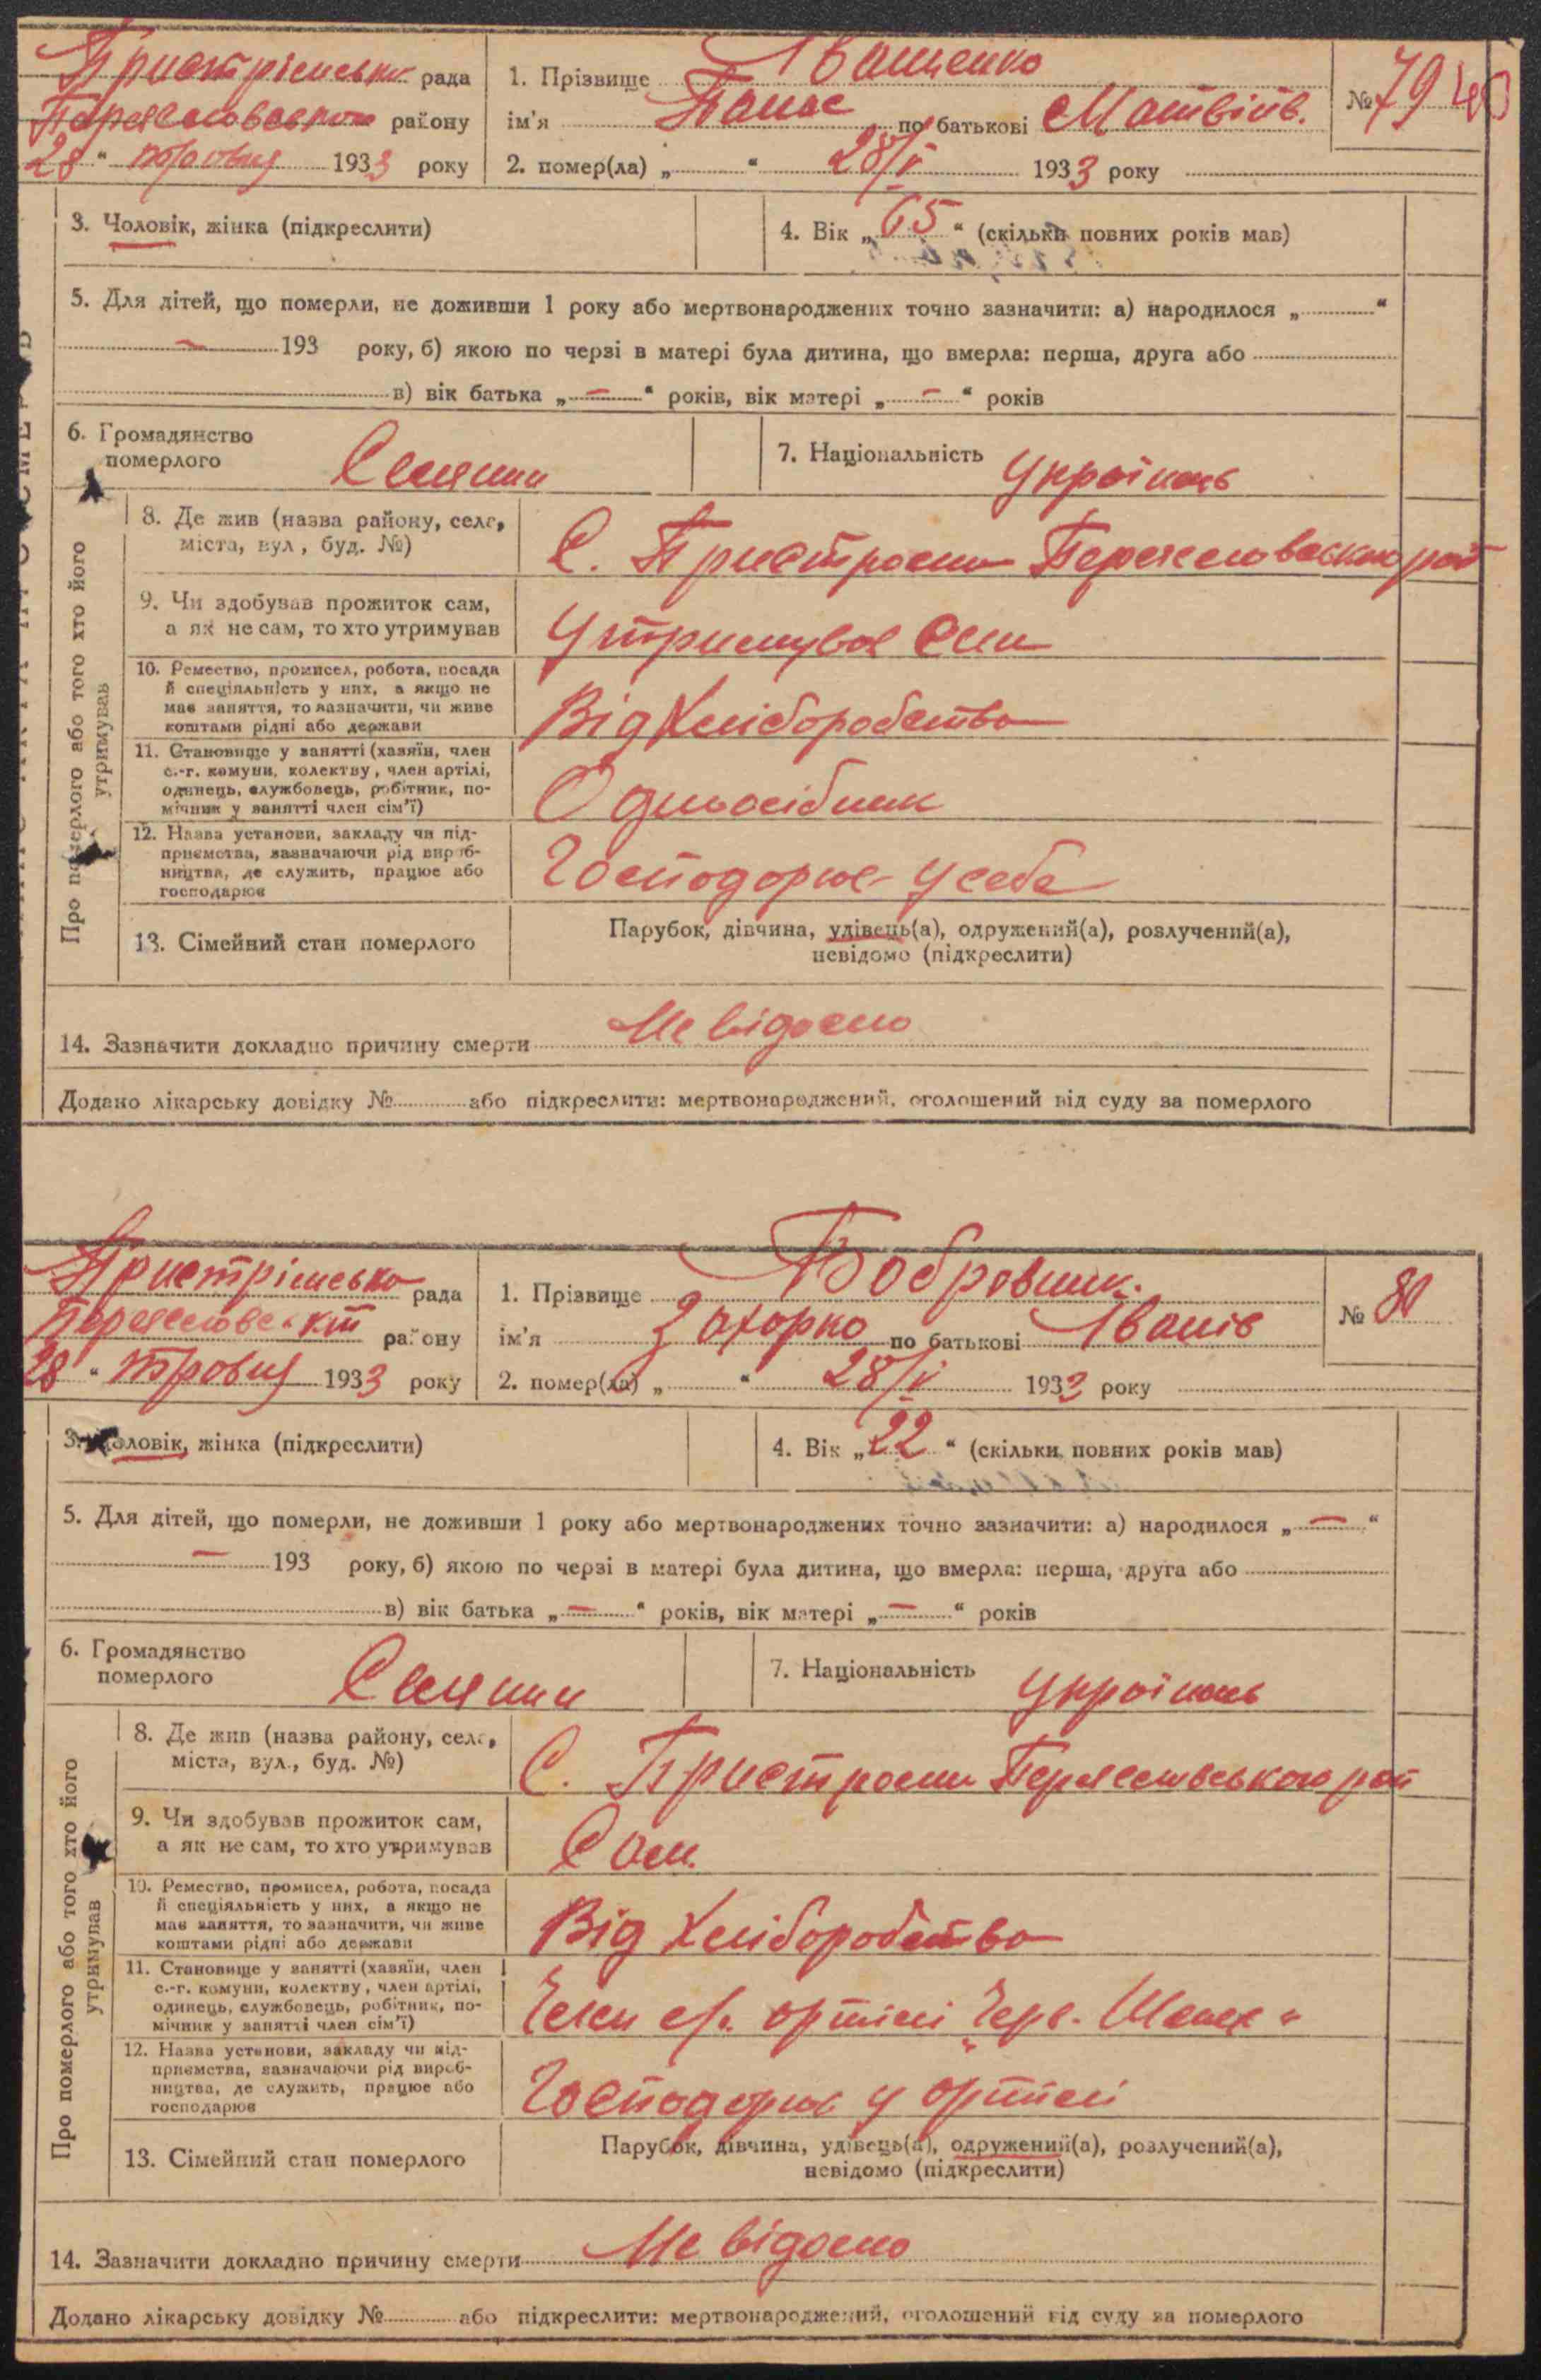 Пристрімська рада
Переяславського району
28 " травня 1933 року
1. Прізвище Іващенко
ім'я Панас по батькові Матвіїв.
№ 79
2. помер(ла) „ " 28/V 1933 року
3. Чоловік, жінка (підкреслити)
4. Вік „ 65 " (скільки повних років мав)
5. Для дітей, що померли, не доживши 1 року або мертвонароджених точно зазначити: а) народилося „ "
— 193 року, б) якою по черзі в матері була дитина, що вмерла: перша, друга або
в) вік батька „ — " років, вік матері „ — " років
6. Громадянство
померлого Селянин
7. Національність Українець
Про померлого або того хто його
утримував
8. Де жив (назва району, села,
міста, вул, буд. №)
С. Пристроми Переяславського рай
9. Чи здобував прожиток сам,
а як не сам, то хто утримував
Утримував Син
10. Ремество, промисел, робота, посада
й спеціяльність у них, а якщо не
має заняття, то зазначити, чи живе
коштами рідні або держави
Від Хліборобства
11. Становище у занятті (хазяїн, член
с.-г. комуни, колективу, член артілі,
одинець, службовець, робітник, по-
мічник у занятті член сім'ї)
Одноосібник
12. Назва установи, закладу чи під-
приємства, зазначаючи рід вироб-
ництва, де служить, працює або
господарює
Господорює у себе
13. Сімейний стан померлого
Парубок, дівчина, удівець(а), одружений(а), розлучений(а),
невідомо (підкреслити)
14. Зазначити докладно причину смерти Не відомо
Додано лікарську довідку № або підкреслити: мертвонароджений, оголошений від суду за померлого
Пристрімська рада
району
28 " травня 1933 року
1. Прізвище Бобровник.
ім'я Захорко по батькові Іванів
№ 80
2. помер(ла) „ " 28/V 1933 року
3. Чоловік, жінка (підкреслити)
4. Вік „ 22 " (скільки повних років мав)
5. Для дітей, що померли, не доживши 1 року або мертвонароджених точно зазначити: а) народилося „ — "
— 193 року, б) якою по черзі в матері була дитина, що вмерла: перша, друга або
в) вік батька „ — " років, вік матері „ — " років
6. Громадянство
померлого Селянин
7. Національність Українець
Про померлого або того хто його
утримував
8. Де жив (назва району, села,
міста, вул., буд. №)
С. Пристроми Переяславського рай
9. Чи здобував прожиток сам,
а як не сам, то хто утримував
Сам.
10. Ремество, промисел, робота, посада
й спеціяльність у них, а якщо не
має заняття, то зазначити, чи живе
коштами рідні або держави
Від Хліборобства
11. Становище у занятті (хазяїн, член
с.-г. комуни, колективу, член артілі,
одинець, службовець, робітник, по-
мічник у занятті член сім'ї)
Член с/г. артілі „Черв. Шлях"
12. Назва установи, закладу чи під-
приємства, зазначаючи рід вироб-
ництва, де служить, працює або
господарює
Господорює у артілі
13. Сімейний стан померлого
Парубок, дівчина, удівець(а), одружений(а), розлучений(а),
невідомо (підкреслити)
14. Зазначити докладно причину смерти Не відомо
Додано лікарську довідку № або підкреслити: мертвонароджений, оголошений від суду за померлого